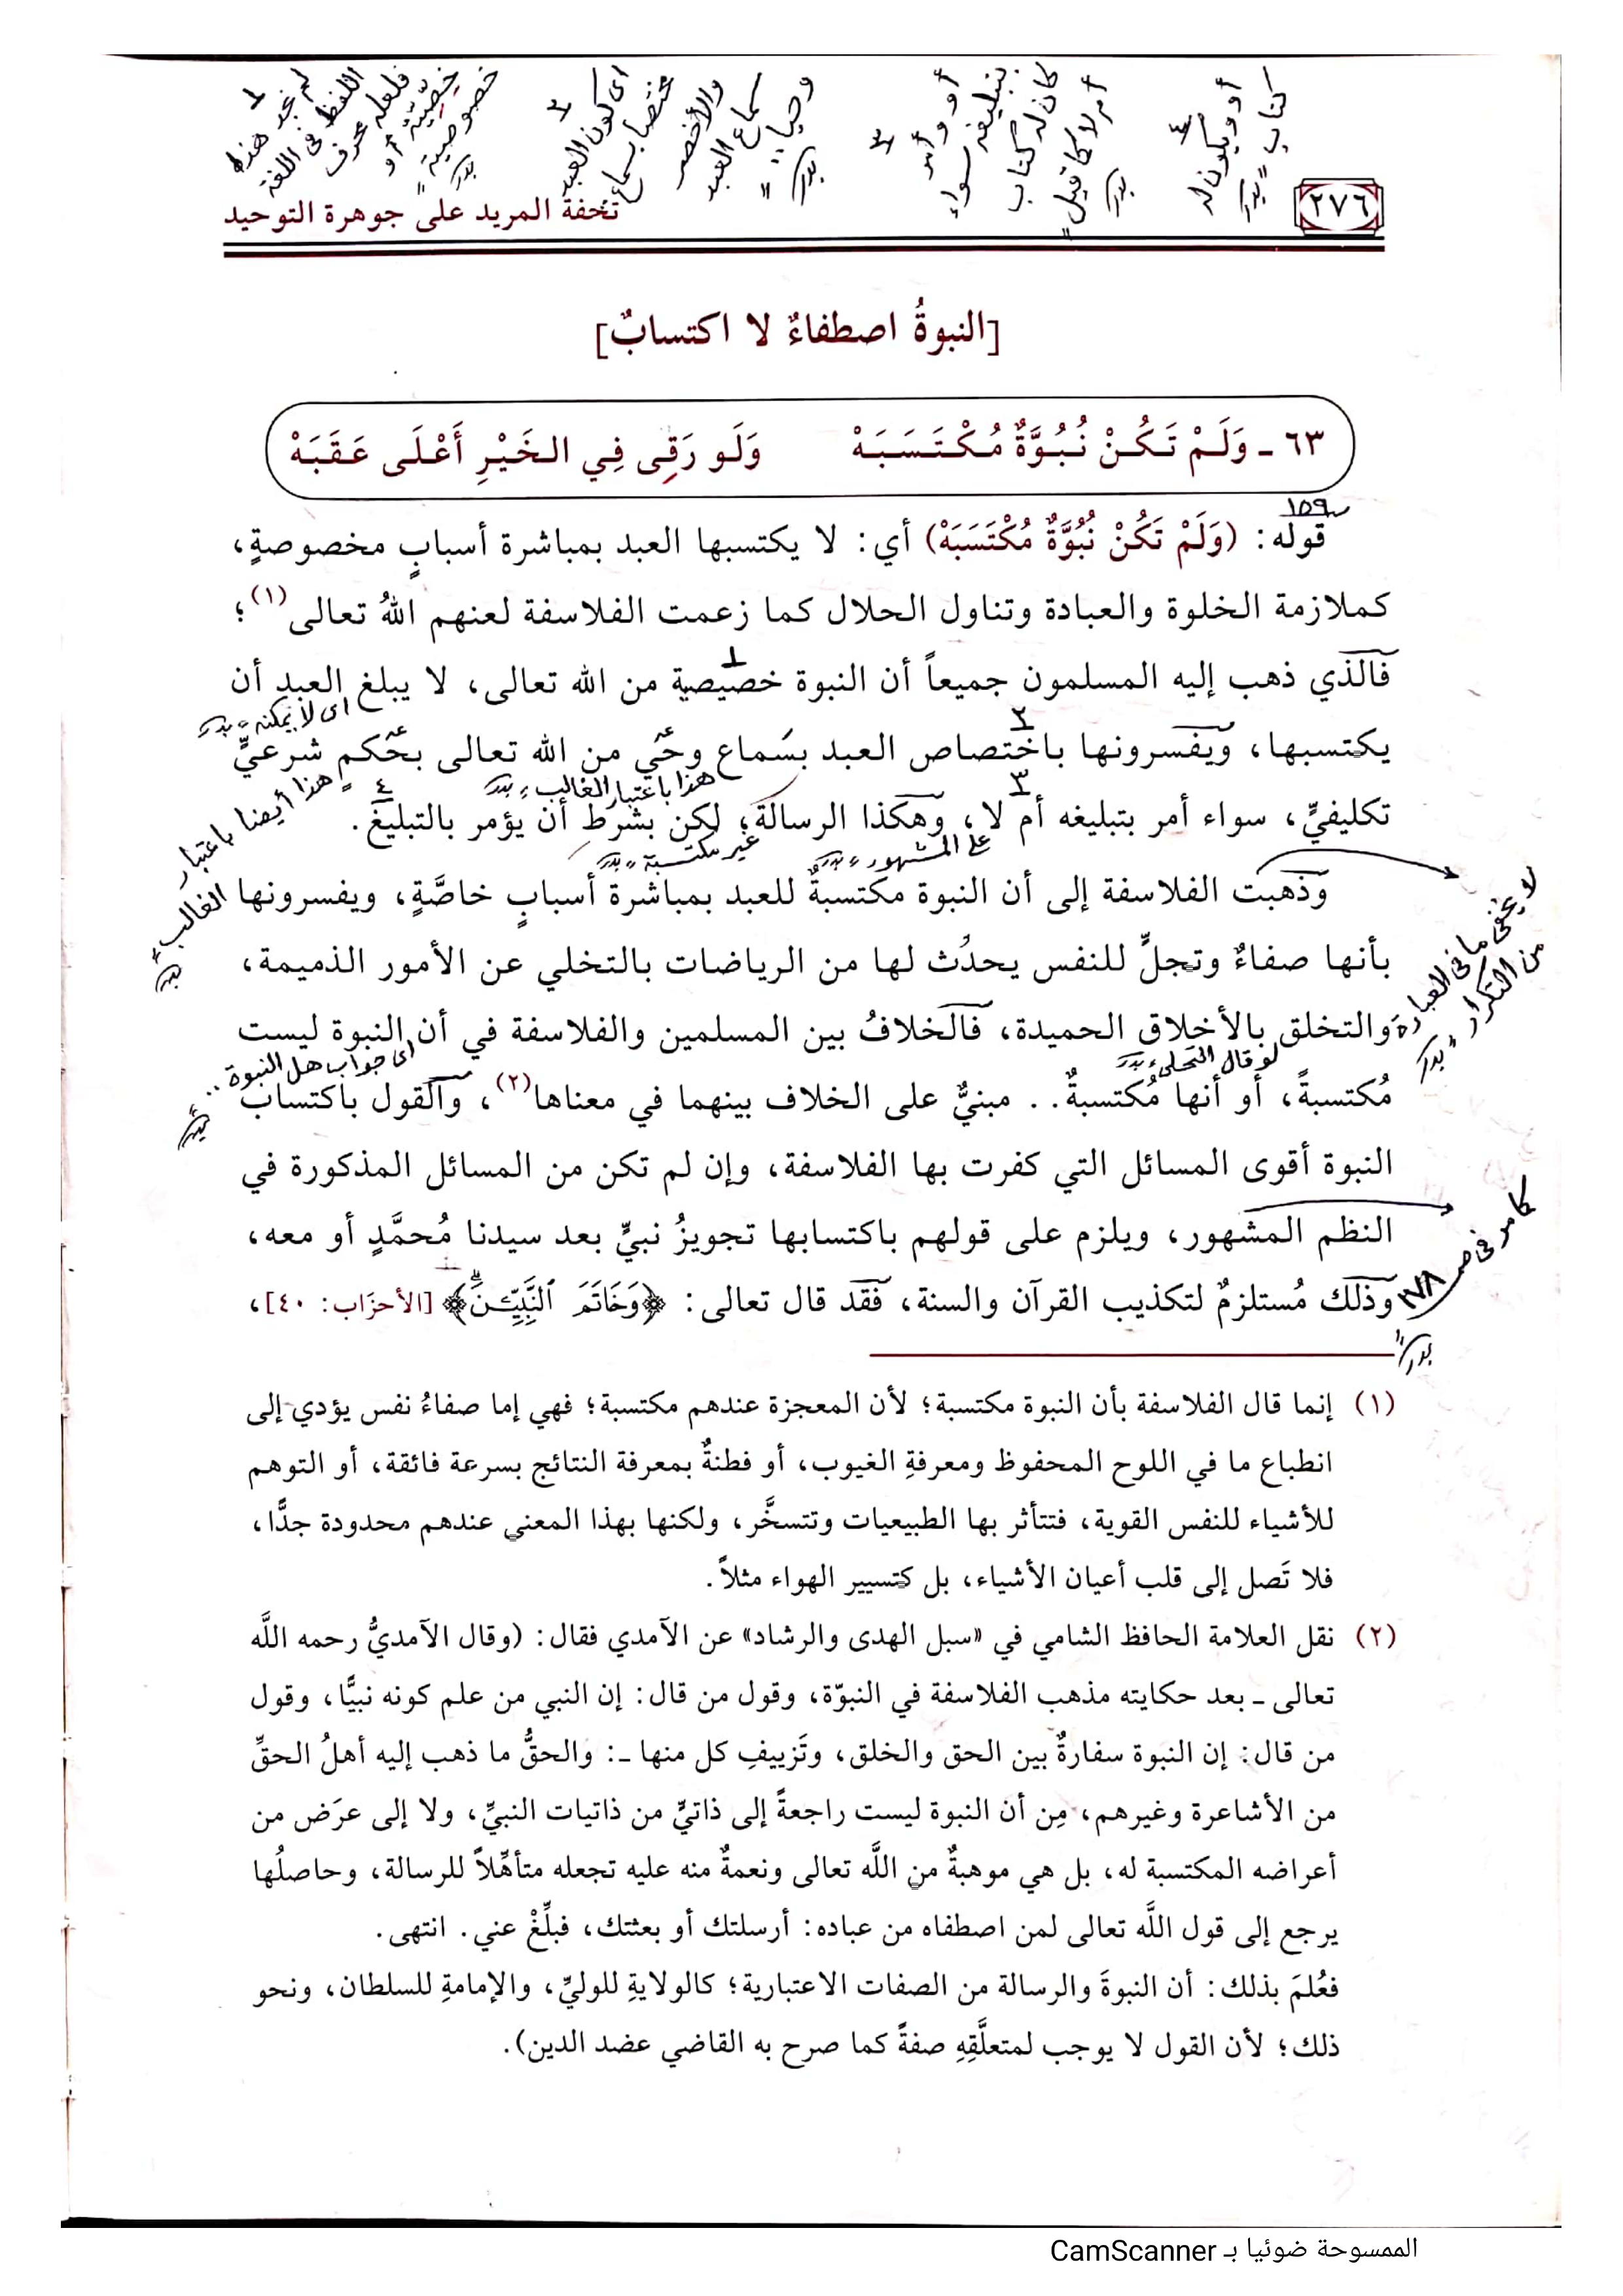 ١
لم نجد هذا
اللفظ فى اللغة
فلعله محرف
خصّيّة أو
خصوصية
بدر
٢
اى كون العبد
مختصا بسماع
والأخصر
سماع العبد
وحيا
بدر
٣
أو وأمر
بتبليغه سواء
كان له كتاب
أم لا كما قيل
بدر
٤
أو ويكون له
كتاب
بدر
٢٧٦
تحفة المريد على جوهرة التوحيد
[النبوةُ اصطفاءٌ لا اكتسابٌ]
٦٣ ـ وَلَمْ تَكُنْ نُبُوَّةٌ مُكْتَسَبَهْ وَلَو رَقِى فِي الخَيْرِ أَعْلَى عَقَبَهْ
١٥٩
قوله: (وَلَمْ تَكُنْ نُبُوَّةٌ مُكْتَسَبَهْ) أي: لا يكتسبها العبد بمباشرة أسبابٍ مخصوصةٍ،
كملازمة الخلوة والعبادة وتناول الحلال كما زعمت الفلاسفة لعنهم اللهُ تعالى(١)؛
فالذي ذهب إليه المسلمون جميعاً أن النبوة خصيصية من الله تعالى، لا يبلغ العبد أن
اى لا يمكنه بدر
يكتسبها، ويفسرونها باختصاص العبد بسَماع وحْي من الله تعالى بحُكمٍ شرعيٍّ
هذا باعتبار الغالب بدر
هذا أيضا باعتبار الغالب بدر
تكليفيٍّ، سواء أمر بتبليغه أم لا، وهكذا الرسالة؛ لكن بشرط أن يؤمر بالتبليغ.
على المشهور بدر
غير مكتسبة بدر
وذهبت الفلاسفة إلى أن النبوة مكتسبةٌ للعبد بمباشرة أسبابٍ خاصَّةٍ، ويفسرونها
لا يخفى ما فى العبارة
من التكرار بدر
بأنها صفاءٌ وتجلٍّ للنفس يحدُث لها من الرياضات بالتخلي عن الأمور الذميمة،
والتخلق بالأخلاق الحميدة، فالخلافُ بين المسلمين والفلاسفة في أن النبوة ليست
لو قال التحلى بدر
اى جواب هل النبوة ..
مُكتسبةً، أو أنها مُكتسبةٌ.. مبنيٌّ على الخلاف بينهما في معناها(٢)، والقول باكتساب
النبوة أقوى المسائل التي كفرت بها الفلاسفة، وإن لم تكن من المسائل المذكورة في
النظم المشهور، ويلزم على قولهم باكتسابها تجويزُ نبيٍّ بعد سيدنا مُحمَّدٍ أو معه،
كما مر فى صـ ١٧٨
بدر
وذلك مُستلزمٌ لتكذيب القرآن والسنة، فقد قال تعالى: ﴿وَخَاتَمَ ٱلنَّبِيِّـۧنَۗ﴾ [الأحزَاب: ٤٠]،
(١) إنما قال الفلاسفة بأن النبوة مكتسبة؛ لأن المعجزة عندهم مكتسبة؛ فهي إما صفاءُ نفس يؤدي إلى
انطباع ما في اللوح المحفوظ ومعرفةِ الغيوب، أو فطنةٌ بمعرفة النتائج بسرعة فائقة، أو التوهم
للأشياء للنفس القوية، فتتأثر بها الطبيعيات وتتسخَّر، ولكنها بهذا المعنى عندهم محدودة جدًّا،
فلا تَصل إلى قلب أعيان الأشياء، بل كتسيير الهواء مثلاً.
(٢) نقل العلامة الحافظ الشامي في «سبل الهدى والرشاد» عن الآمدي فقال: (وقال الآمديُّ رحمه اللَّه
تعالى ـ بعد حكايته مذهب الفلاسفة في النبوّة، وقول من قال: إن النبي من علم كونه نبيًّا، وقول
من قال: إن النبوة سفارةٌ بين الحق والخلق، وتَزييفِ كل منها ـ: والحقُّ ما ذهب إليه أهلُ الحقِّ
من الأشاعرة وغيرهم، مِن أن النبوة ليست راجعةً إلى ذاتيٍّ من ذاتيات النبيِّ، ولا إلى عرَض من
أعراضه المكتسبة له، بل هي موهبةٌ من اللَّه تعالى ونعمةٌ منه عليه تجعله متأهِّلاً للرسالة، وحاصلُها
يرجع إلى قول اللَّه تعالى لمن اصطفاه من عباده: أرسلتك أو بعثتك، فبلِّغْ عني. انتهى.
فعُلمَ بذلك: أن النبوةَ والرسالة من الصفات الاعتبارية؛ كالولايةِ للوليِّ، والإمامةِ للسلطان، ونحو
ذلك؛ لأن القول لا يوجب لمتعلَّقِهِ صفةً كما صرح به القاضي عضد الدين).
الممسوحة ضوئيا بـ CamScanner